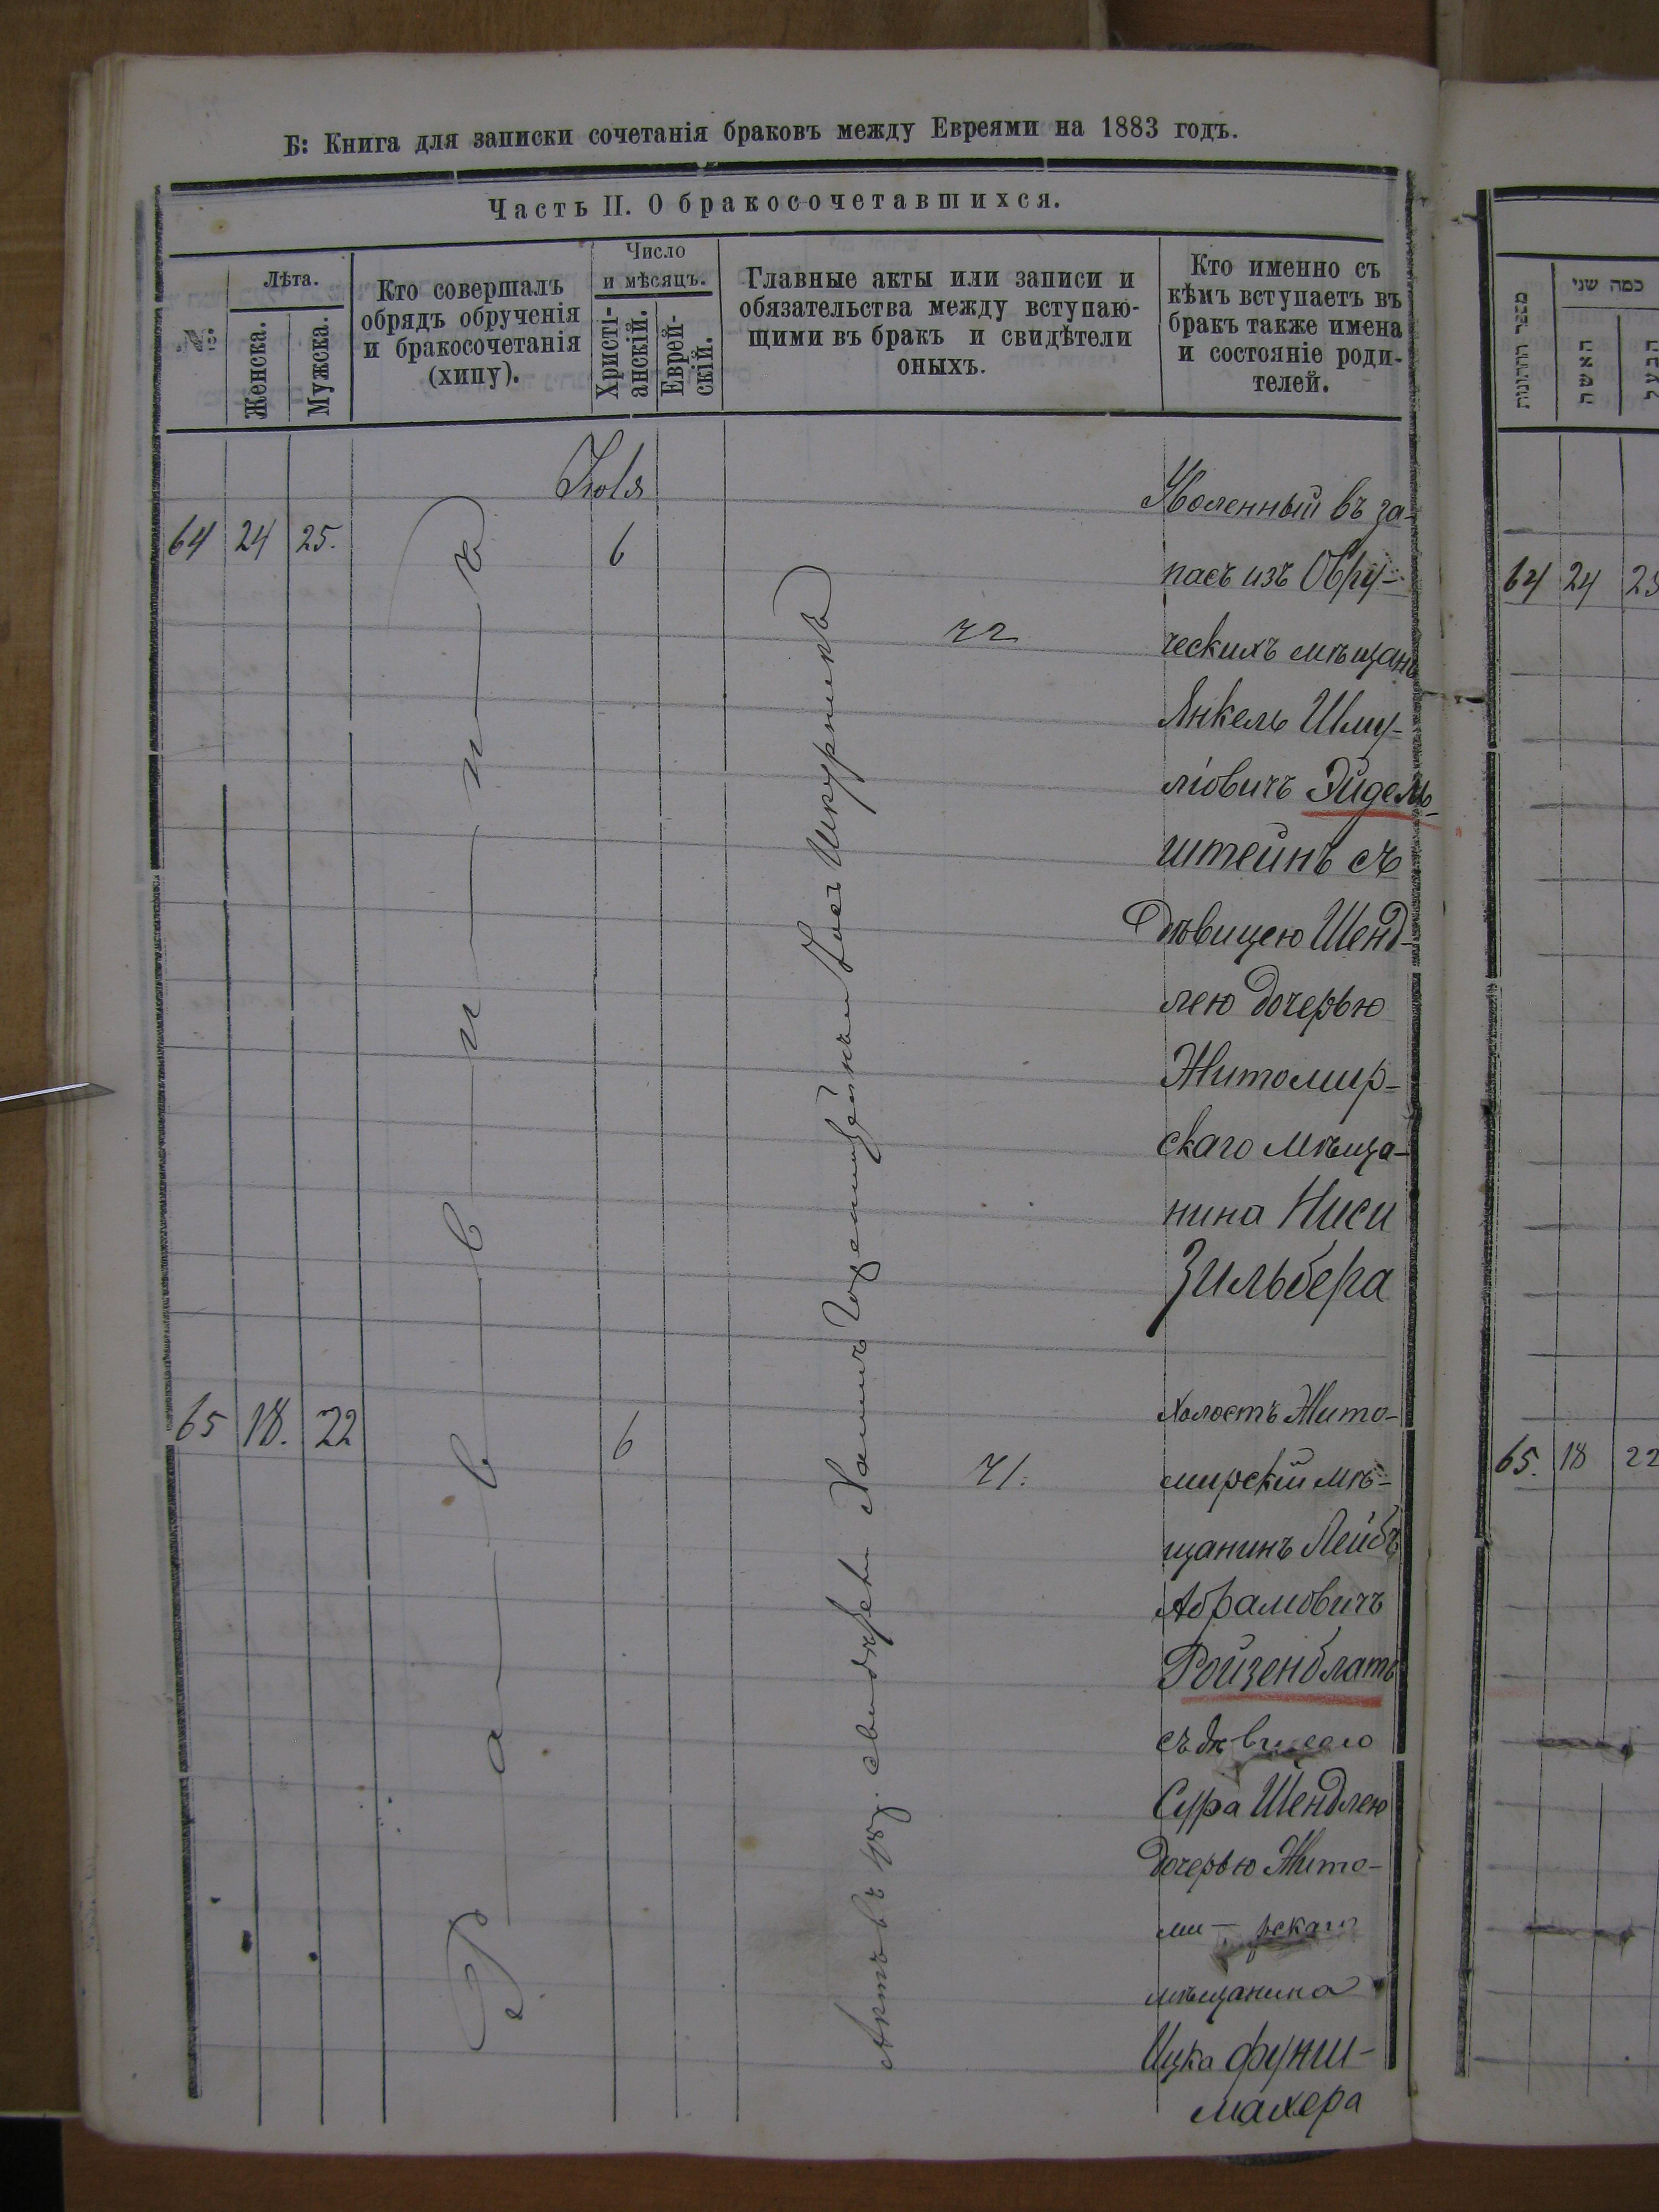 Б: Книга для записки сочетанія браковъ между Евреями на 1883 годъ.
Часть II. О бракосочетавшихся.
№:
Лѣта.
Женска.
Мужска.
Кто совершалъ
обрядъ обрученія
и бракосочетанія
(хипу).
Число
и мѣсяцъ.
Христі-
анскій.
Еврей-
скій.
Главные акты или записи и
обязательства между вступаю-
щими въ бракъ и свидѣтели
оныхъ.
Кто именно съ
кѣмъ вступаетъ въ
бракъ также имена
и состояніе роди-
телей.
Іюля
64 24 25. 6
Раввинъ
Актъ въ 48 р. свидѣтели Хаимъ
Шкурникъ
Уволенный въ за-
пасъ изъ Овру-
ческихъ мѣщанъ
Янкель Шму-
ліовичъ Эйдель-
штейнъ съ
Дѣвицею Шенд-
лею дочерью
Житомир-
скаго мѣща-
нина Ниси
Зильбера
65 18. 22 6
Холостъ Жито-
мирскій мѣ-
щанинъ Лейбъ
Абрамовичъ
Ройзенблатъ
съ дѣвицею
Сура Шендлею
дочерью Жито-
ми-рскаго
мѣщанина
Ицка Фунш-
махера
מספר החתונות
כמה שני
האשה
הבעל
64 24 25
65. 18 22